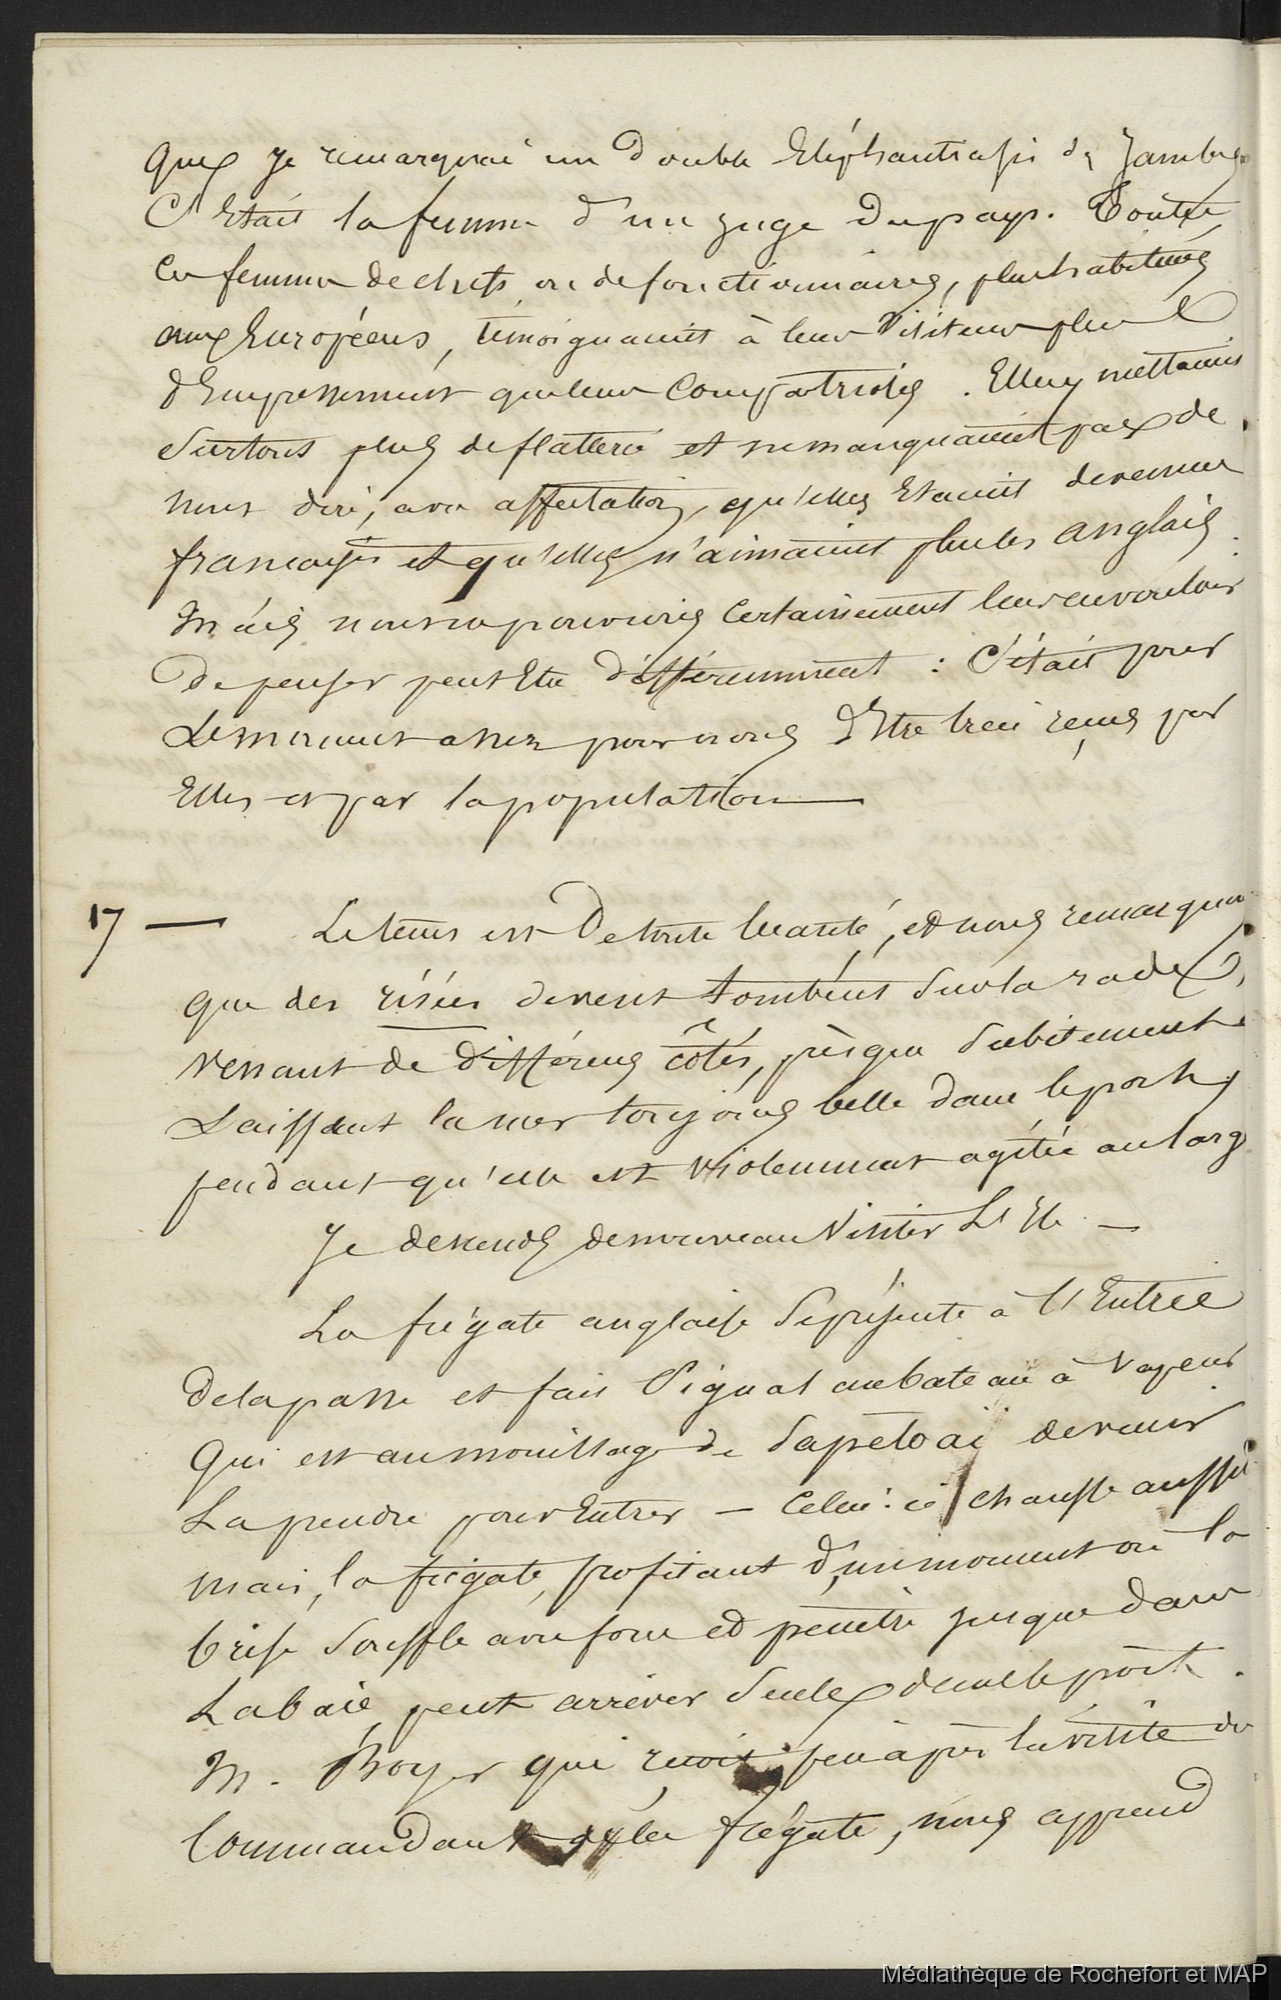 que je remarquai un double Eléphantiasis des Jambes
C'Etait la femme d'un juge du pays. Toutes
ces femmes de chefs ou de fonctionnaires, plus habituées
aux Européens, témoignaient à leur Visiteur plus
d'Empressement que leurs Compatriotes. Elles y mettaient
Surtout plus de flatterie et ne manquaient pas de
nous dire, avec affectation, qu'elles Etaient devenues
françaises et qu'elles n'aimaient plus les anglais.
Mais nous ne pouvions Certainement leur en vouloir
De penser peut Etre différemment : C'était pour
Le moment assez pour nous d'Etre bien reçus par
Elles et par la population —
17 — Le tems est De toute beauté, et nous remarquons
que des risées devent tombent Sur la rade,
Venant de différens côtés, presque Subitement
Laissant la mer toujours belle dans le port,
pendant qu'elle est Violemment agitée au large
Je descends de nouveau Visiter L'Ile —
La frégate anglaise Se présente à l'Entrée
De la passe et fait Signal au bateau à Vapeur
Qui est au mouillage de Papetoai de venir
La prendre pour Entrer — Celui-ci chauffe aussi
mais, la frégate, profitant d'un moment où la
brise Souffle avec force et pénètre jusque dans
La baie, peut arriver Seule dans le port.
M. Boyer qui reçoit peu après la visite du
Commandant de la frégate, nous apprend
Médiathèque de Rochefort et MAP